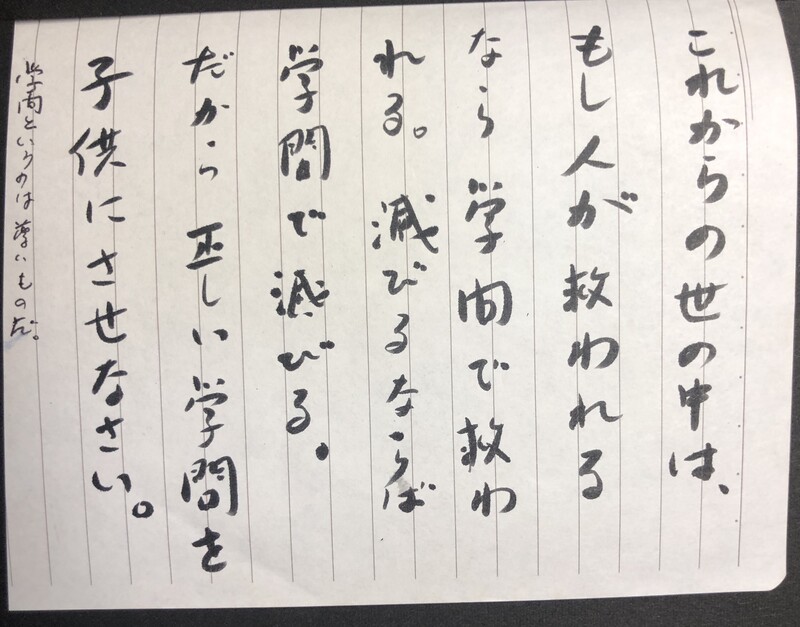 これからの世の中は、
もし人が救われる
なら学問で救わ
れる。滅びるならば
学問で滅びる。
だから正しい学問を
子供にさせなさい。
学問というのは尊いものだ。